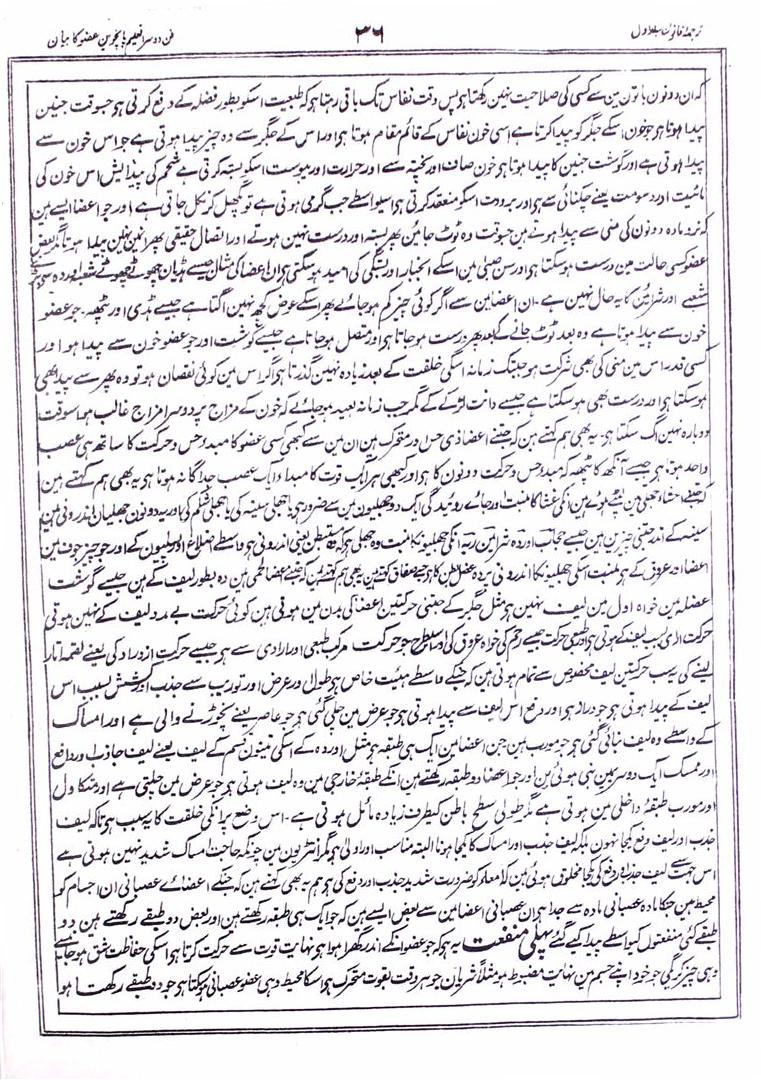 ترجمۂ قانون جلد اول
۳۶
فن دوسرا تعلیم پانچوین عضو کا بیان
کہ ان دونون باتون مین سے کسی کی صلاحیت نہین رکھتا ہو پس وقت نفاس تک باقی رہتا ہو کہ طبیعت اسکو بطور فضلہ کے دفع کرتی ہو جبوقت جنین
پیدا ہوتا ہو جو خون اسکے جگر کو پیدا کرتا ہے اسی خون نفاس کے قائم مقام ہوتا ہو اور اس کے جگر سے وہ چیز پیدا ہوتی ہے جو اس خون سے
پیدا ہوتی ہے اور گوشت جنین کا پیدا ہوتا ہو خون صاف اور پختہ سے اور حرارت اور یبوست اسکو بستہ کرتی ہے شحم کی پیدایش اس خون کی
مائیت اور دسومت یعنے چکنائی سے ہو اور برودت اسکو منعقد کرتی ہو اسیواسطے جب گرمی ہوتی ہے تو پگھل کر نکل جاتی ہے اور جو اعضا ایسے ہین
کہ نر و مادہ دونون کی منی سے پیدا ہوتے ہین جبوقت وہ ٹوٹ جائین پھر بستہ اور درست نہین ہوتے اور اتصال حقیقی پھر انہین نہین پیدا ہوتا مگر بعض
عضو کسی حالت مین درست ہوسکتا ہو اور سن صبی مین اسکے انجبار اور بستگی کی امید ہوسکتی ہو ان اعضا کی مثال جیسے ہڈیان چھوٹے چھوٹے شعبہ اوردہ کے
شعبے اور شرائین کا یہ حال نہین ہے۔ ان اعضا مین سے اگر کوئی چیز کم ہوجائے پھر اسکے عوض کچھ نہین اگتا ہے جیسے ہڈی اور پٹھہ۔ جو عضو
خون سے پیدا ہوتا ہے وہ بعد ٹوٹ جانے کے بعد پھر درست ہوجاتا ہو اور متصل ہوجاتا ہے جیسے گوشت اور جو عضو خون سے پیدا ہو اور
کسی قدر اس مین منی کی بھی شرکت ہو جبتک زمانہ اسکی خلقت کے بعد زیادہ نہین گذرتا ہو اگر اس مین کوئی نقصان ہو تو وہ پھر سے پیدا بھی
ہوسکتا ہو اور درست بھی ہوسکتا ہے جیسے دانت لڑکے کے مگر جب زمانہ بعید ہوجائے کہ خون کے مزاج پر دوسرا مزاج غالب ہو اسوقت
دوبارہ نہین اگ سکتا ہو۔ یہ بھی ہم کہتے ہین کہ جتنے اعضا ذی حس اور متحرک ہین ان مین سے کبھی کسی عضو کا مبدا حس و حرکت کا ساتھ ہی عصب
واحد ہوتا ہو جیسے آنکھ کا پٹھہ کہ مبدا حس و حرکت دونون کا ہو اور کبھی ہر ایک قوت کا مبدا ایک عصب جداگانہ ہوتا ہو یہ بھی ہم کہتے ہین
کہ جتنے احشا جھلی مین لپٹے ہوئے ہین انکی غشا کا منبت اور جاے روئیدگی ایک دو جھلیون مین سے ضرور ہو یا جھلی سینہ کی یا جھلی شکم کی اور یہ دونون جھلیان اندرونی ہین
سینہ کے اندر جتنی چیزین ہین جیسے حجاب اور اوردہ شرائین ریہ انکی جھلیونکا منبت وہ جھلی ہو کہ مستبطن یعنی اندرونی ہو واسطے اضلاع اور پسلیون کے اور جو چیز جوف مین
اعضا اور عروق کے ہو منبت اسکی جھلیونکا اندرونی پردہ عضل بطن کا ہو جسے صفاق کہتے ہین یہ بھی ہم کہتے ہین کہ جتنے عضو لحمی ہین وہ بطور لیف کے ہین جیسے گوشت
عضلہ مین خواہ اول مین لیف نہین ہو مثل جگر کے جتنی حرکتین اعضا کی بدن مین ہوتی ہین کوئی حرکت بے مدد لیف کے نہین ہوتی
حرکت ارادی بسبب لیف کے ہوتی ہو اور طبعی حرکت جیسے رحم کی خواہ عروق کی اور اسیطرح جو حرکت مرکب طبعی اور ارادی سے ہو جیسے حرکت ازدراد کی یعنے لقمہ اتار
لینے کی یہ سب حرکتین لیف مخصوص سے تمام ہوتی ہین کہ جسکے واسطے ہیئت خاص ہو طول اور عرض اور توریب سے جذب اور کشش بسبب اس
لیف کے پیدا ہوتی ہو جو دراز ہو اور دفع اس لیف سے پیدا ہوتی ہو جو عرض مین چلی گئی ہو جو عاصر یعنے نچوڑنے والی ہے اور امساک
کے واسطے وہ لیف بنائی گئی ہو جو مورب ہین جن اعضا مین ایک ہی طبقہ ہو مثل اوردہ کے اسکی تینون قسم کے لیف یعنے لیف جاذب اور دافع
اور ممسک ایک دوسریمین بنی ہوئی ہین اور جو اعضا دو طبقہ رکھتے ہین انکے طبقۂ خارجی مین وہ لیف ہوتی ہو جو عرض مین چلتی ہے اور متکاول
اور مورب طبقۂ داخلی مین ہوتی ہے مگر طولی سطح باطن کیطرف زیادہ مائل ہوتی ہے۔ اس وضع پر انکی خلقت کا یہ سبب ہو تاکہ لیف
جذب اور لیف دفع یکجا نہون بلکہ لیف جذب اور امساک کا یکجا ہونا البتہ مناسب اور اولی ہو مگر انتڑیون مین چونکہ حاجت امساک شدید نہین ہوتی ہے
اس جہت سے لیف جذب اور دفع کی یکجا مخلوق ہوئی ہین کہ امعا کو ضرورت شدید جذب اور دفع کی ہو ہم یہ بھی کہتے ہین کہ جتنے اعضاے عصبانی ان اجسام کو
محیط ہین جنکا مادہ عصبانی مادہ سے جدا ہو ان عصبانی اعضا مین سے بعض ایسے ہین کہ جو ایک ہی طبقہ رکھتے ہین اور بعض دو طبقے رکھتے ہین دو
طبقے کئی منفعتون کیواسطے پیدا کیے گئے پہلی منفعت یہ ہو کہ جو عضو انکے اندر گھرا ہوا ہو نہایت قوت سے حرکت کرتا ہو اسکی حفاظت شق ہوجانے سے
وہی چیز کریگی جو خود اپنے جسم مین نہایت مضبوط ہو مثلاً شریان جو ہر وقت بقوت متحرک ہو اسکا محیط وہی عضو عصبانی ہوسکتا ہو جو دو طبقے رکھتا ہو